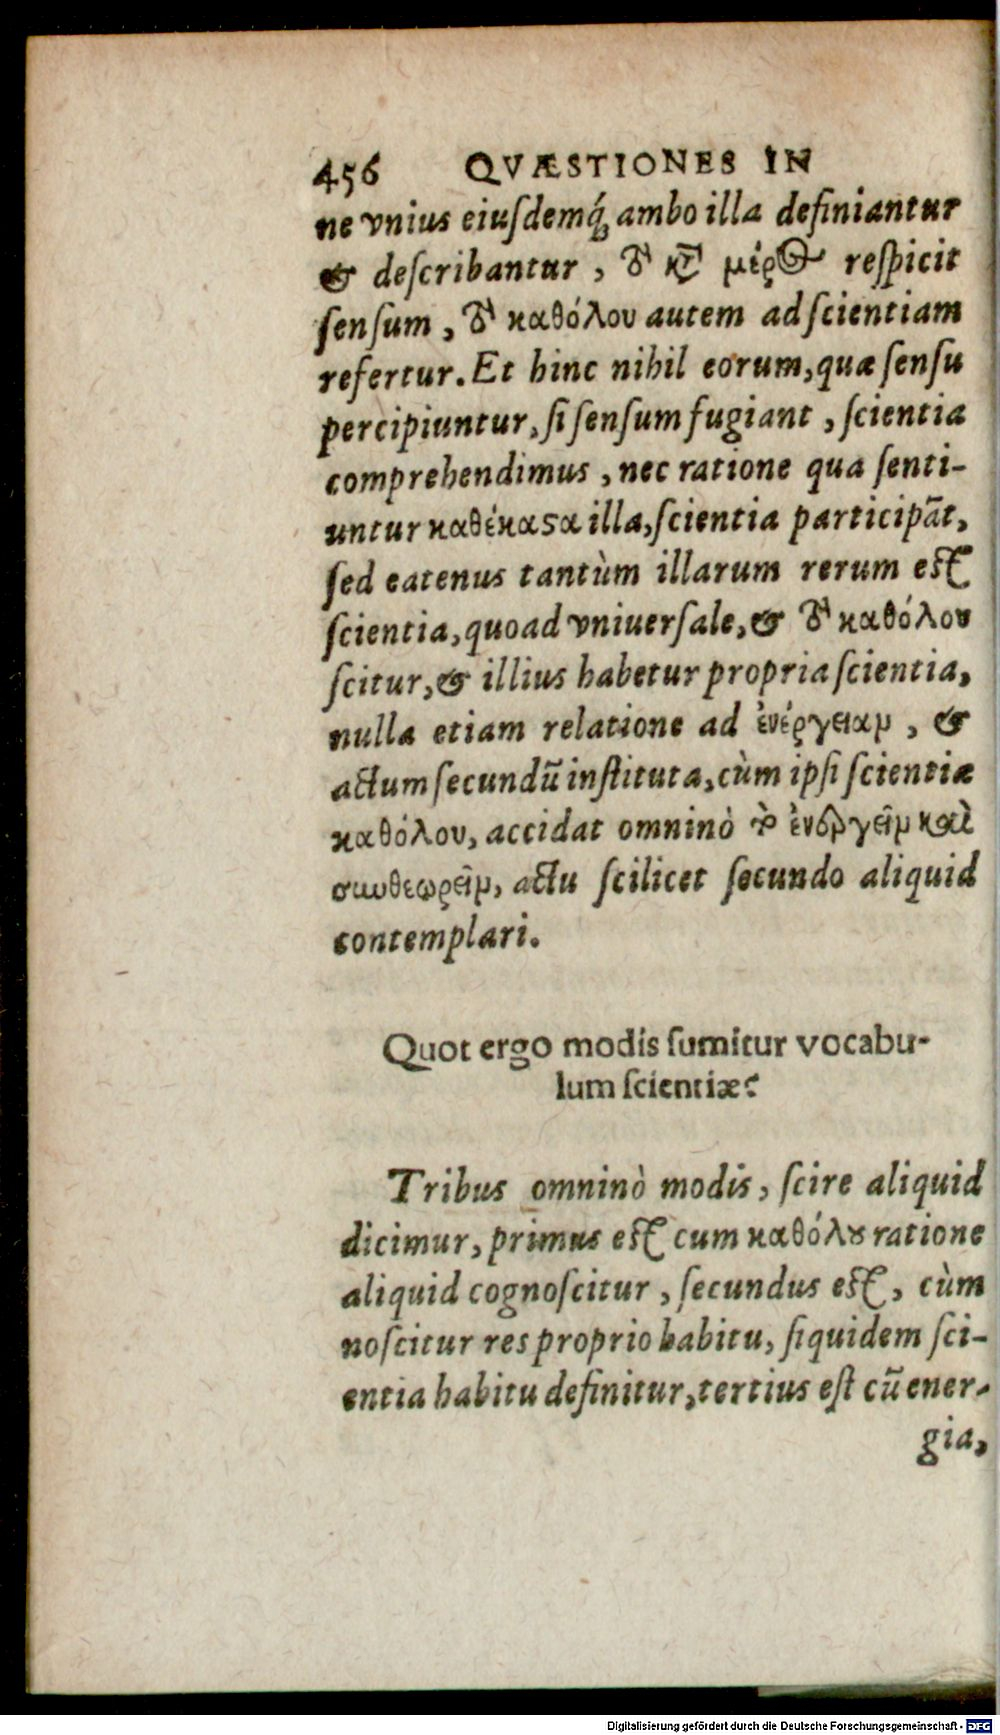 456 QVÆSTIONES IN
ne vnius eiuſdemq́; ambo illa definiantur
& deſcribantur, τὸ κτ̃ μέρος reſpicit
ſenſum, τὸ καθόλου autem ad ſcientiam
refertur. Et hinc nihil eorum, quæ ſenſu
percipiuntur, ſi ſenſum fugiant, ſcientia
comprehendimus, nec ratione qua ſenti-
untur καθέκαϛα illa, ſcientia participãt,
ſed eatenus tantùm illarum rerum eſt
ſcientia, quoad vniuerſale, & τὸ καθόλου
ſcitur, & illius habetur propria ſcientia,
nulla etiam relatione ad ἐνέργειαν, &
actum ſecundũ inſtituta, cùm ipſi ſcientiæ
καθόλου, accidat omninò τὸ ἐνεργεῖν καὶ
συνθεωρεῖν, actu ſcilicet ſecundo aliquid
contemplari.
Quot ergo modis ſumitur vocabu-
lum ſcientiæ?
Tribus omninò modis, ſcire aliquid
dicimur, primus eſt cum καθόλȣ ratione
aliquid cognoſcitur, ſecundus eſt, cùm
noſcitur res proprio habitu, ſiquidem ſci-
entia habitu definitur, tertius eſt cũ ener-
gia,
Digitalisierung gefördert durch die Deutsche Forschungsgemeinschaft - DFG